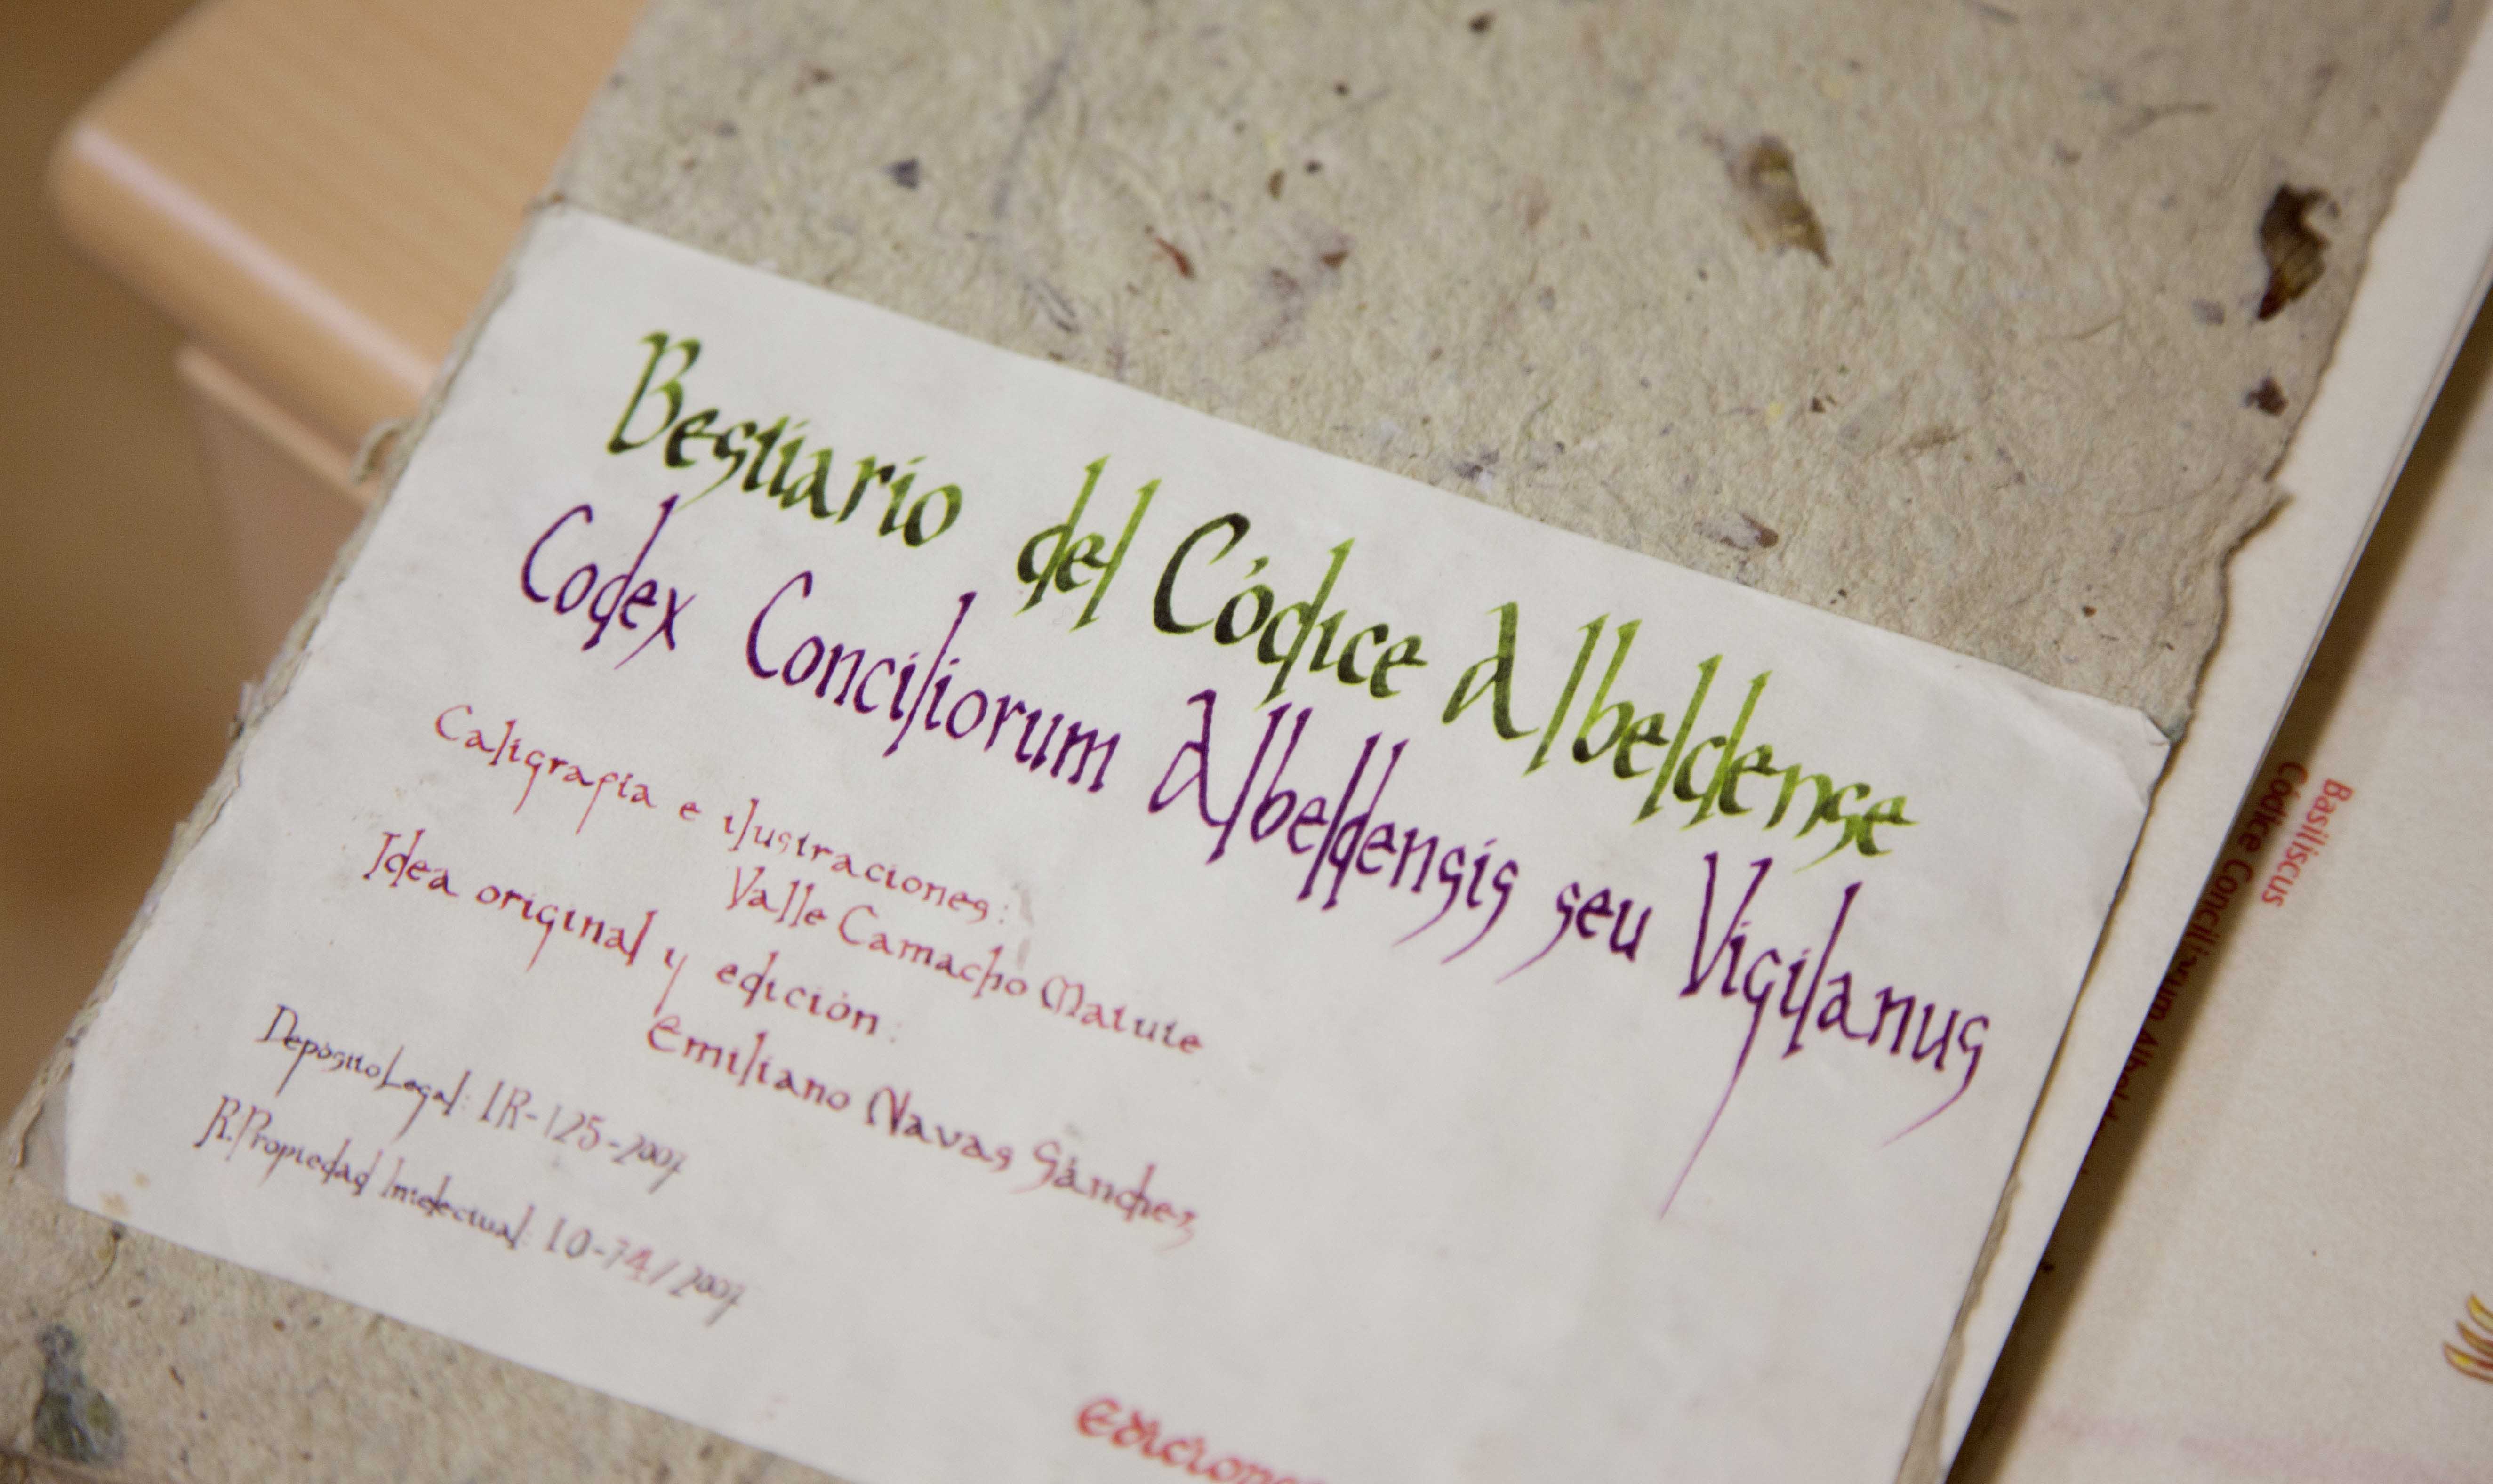 Bestiario del Códice Albeldense
Codex Conciliorum Albeldensis seu Vigilanus
Caligrafia e ilustraciones:
Valle Camacho Matute
Idea original y edición:
Emiliano Navas Sánchez
Depósito Legal: LR-125-2007
R. Propiedad Intelectual: LO-74/2007
Basiliscus
Códice Conciliorum